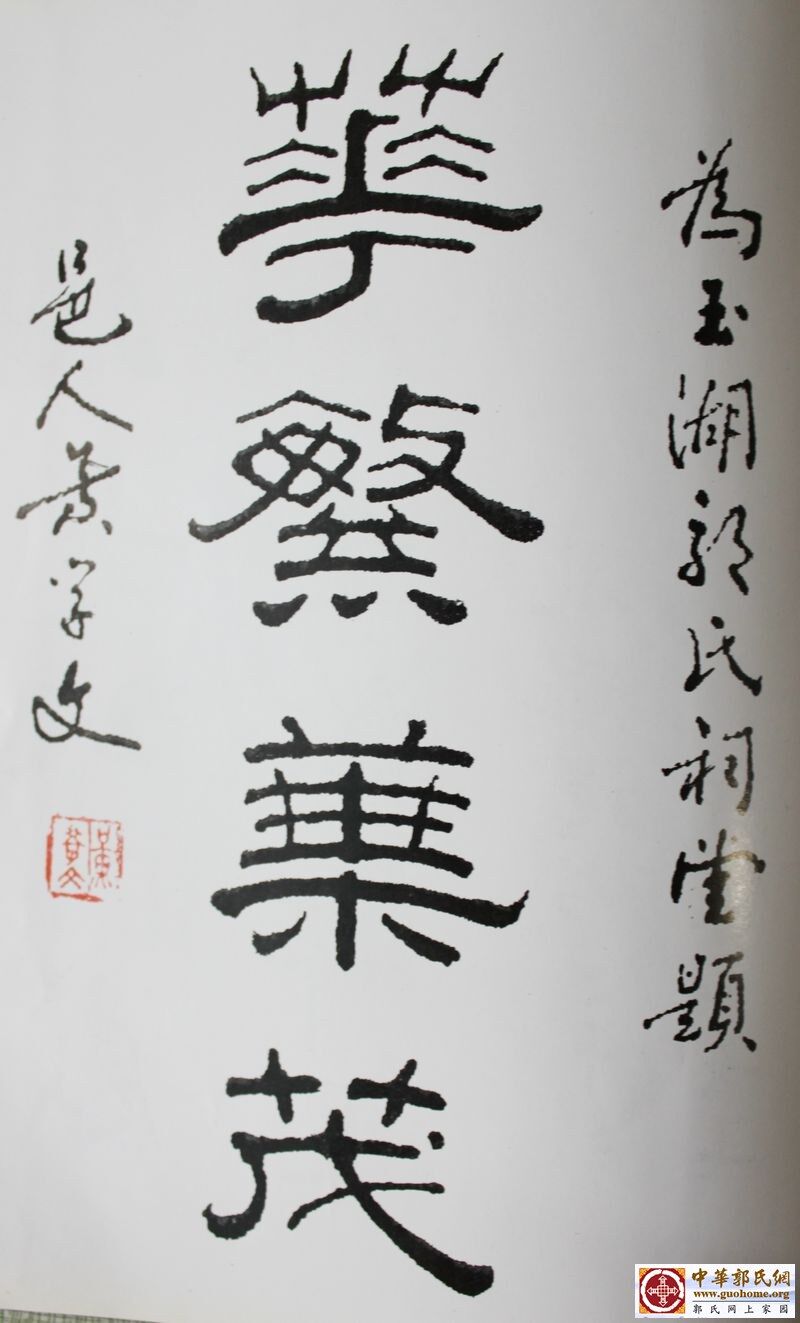 為玉湖郭氏祠堂題
華繁葉茂
邑人黄学文
中華郭氏網
www.guohome.org
郭氏网上家园